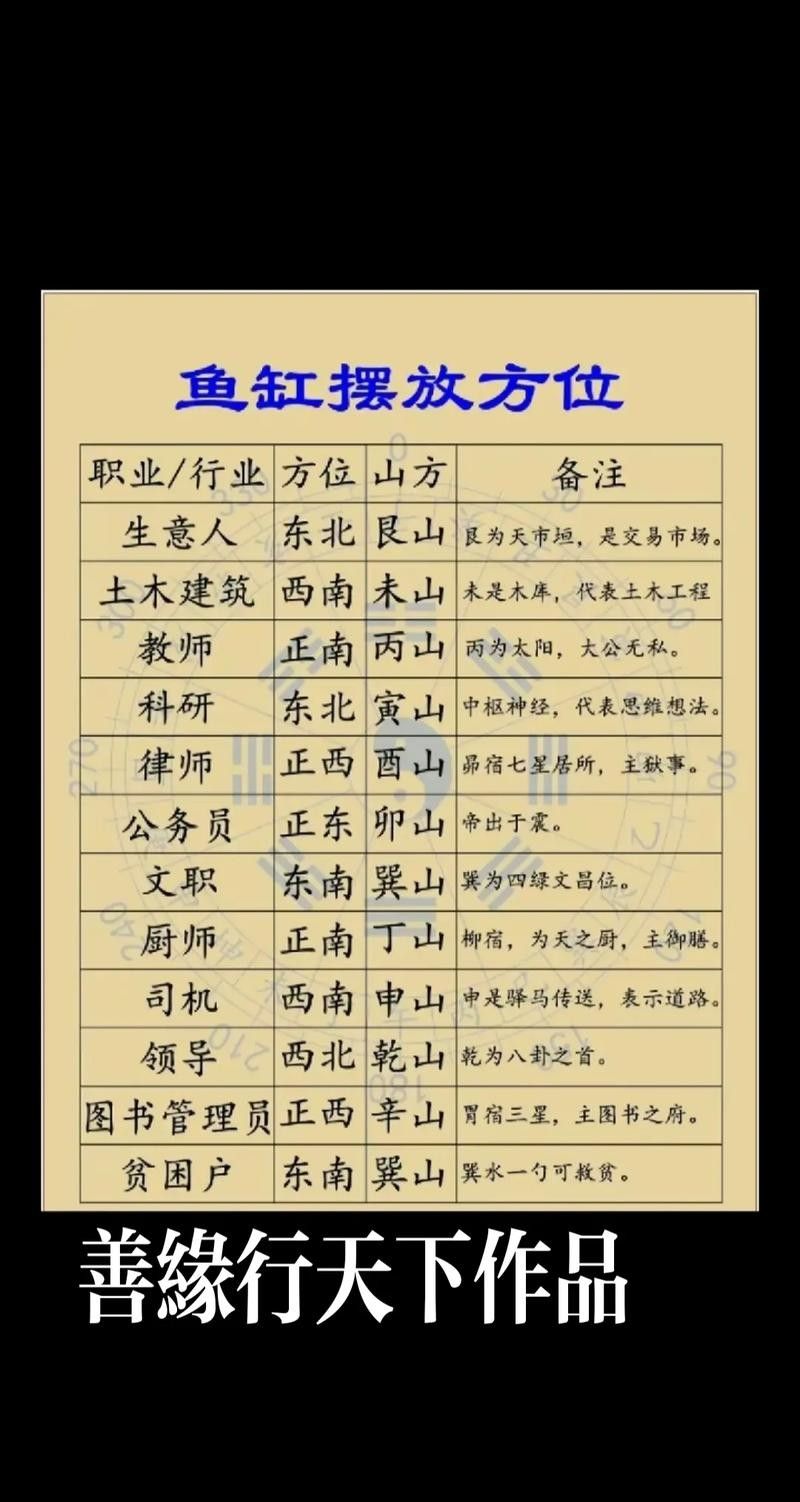 鱼缸摆放方位
职业/行业 方位 山方 备注
生意人 东北 艮山 艮为天市垣，是交易市场。
土木建筑 西南 未山 未是木库，代表土木工程
教师 正南 丙山 丙为太阳，大公无私。
科研 东北 寅山 中枢神经，代表思维想法。
律师 正西 酉山 昴宿七星居所，主狱事。
公务员 正东 卯山 帝出于震。
文职 东南 巽山 巽为四绿文昌位。
厨师 正南 丁山 柳宿，为天之厨，主御膳。
司机 西南 申山 申是驿马传送，表示道路。
领导 西北 乾山 乾为八卦之首。
图书管理员 正西 辛山 胃宿三星，主图书之府。
贫困户 东南 巽山 巽水一勺可救贫。
0
30
90
180
210
240
270
300
330
善緣行天下作品